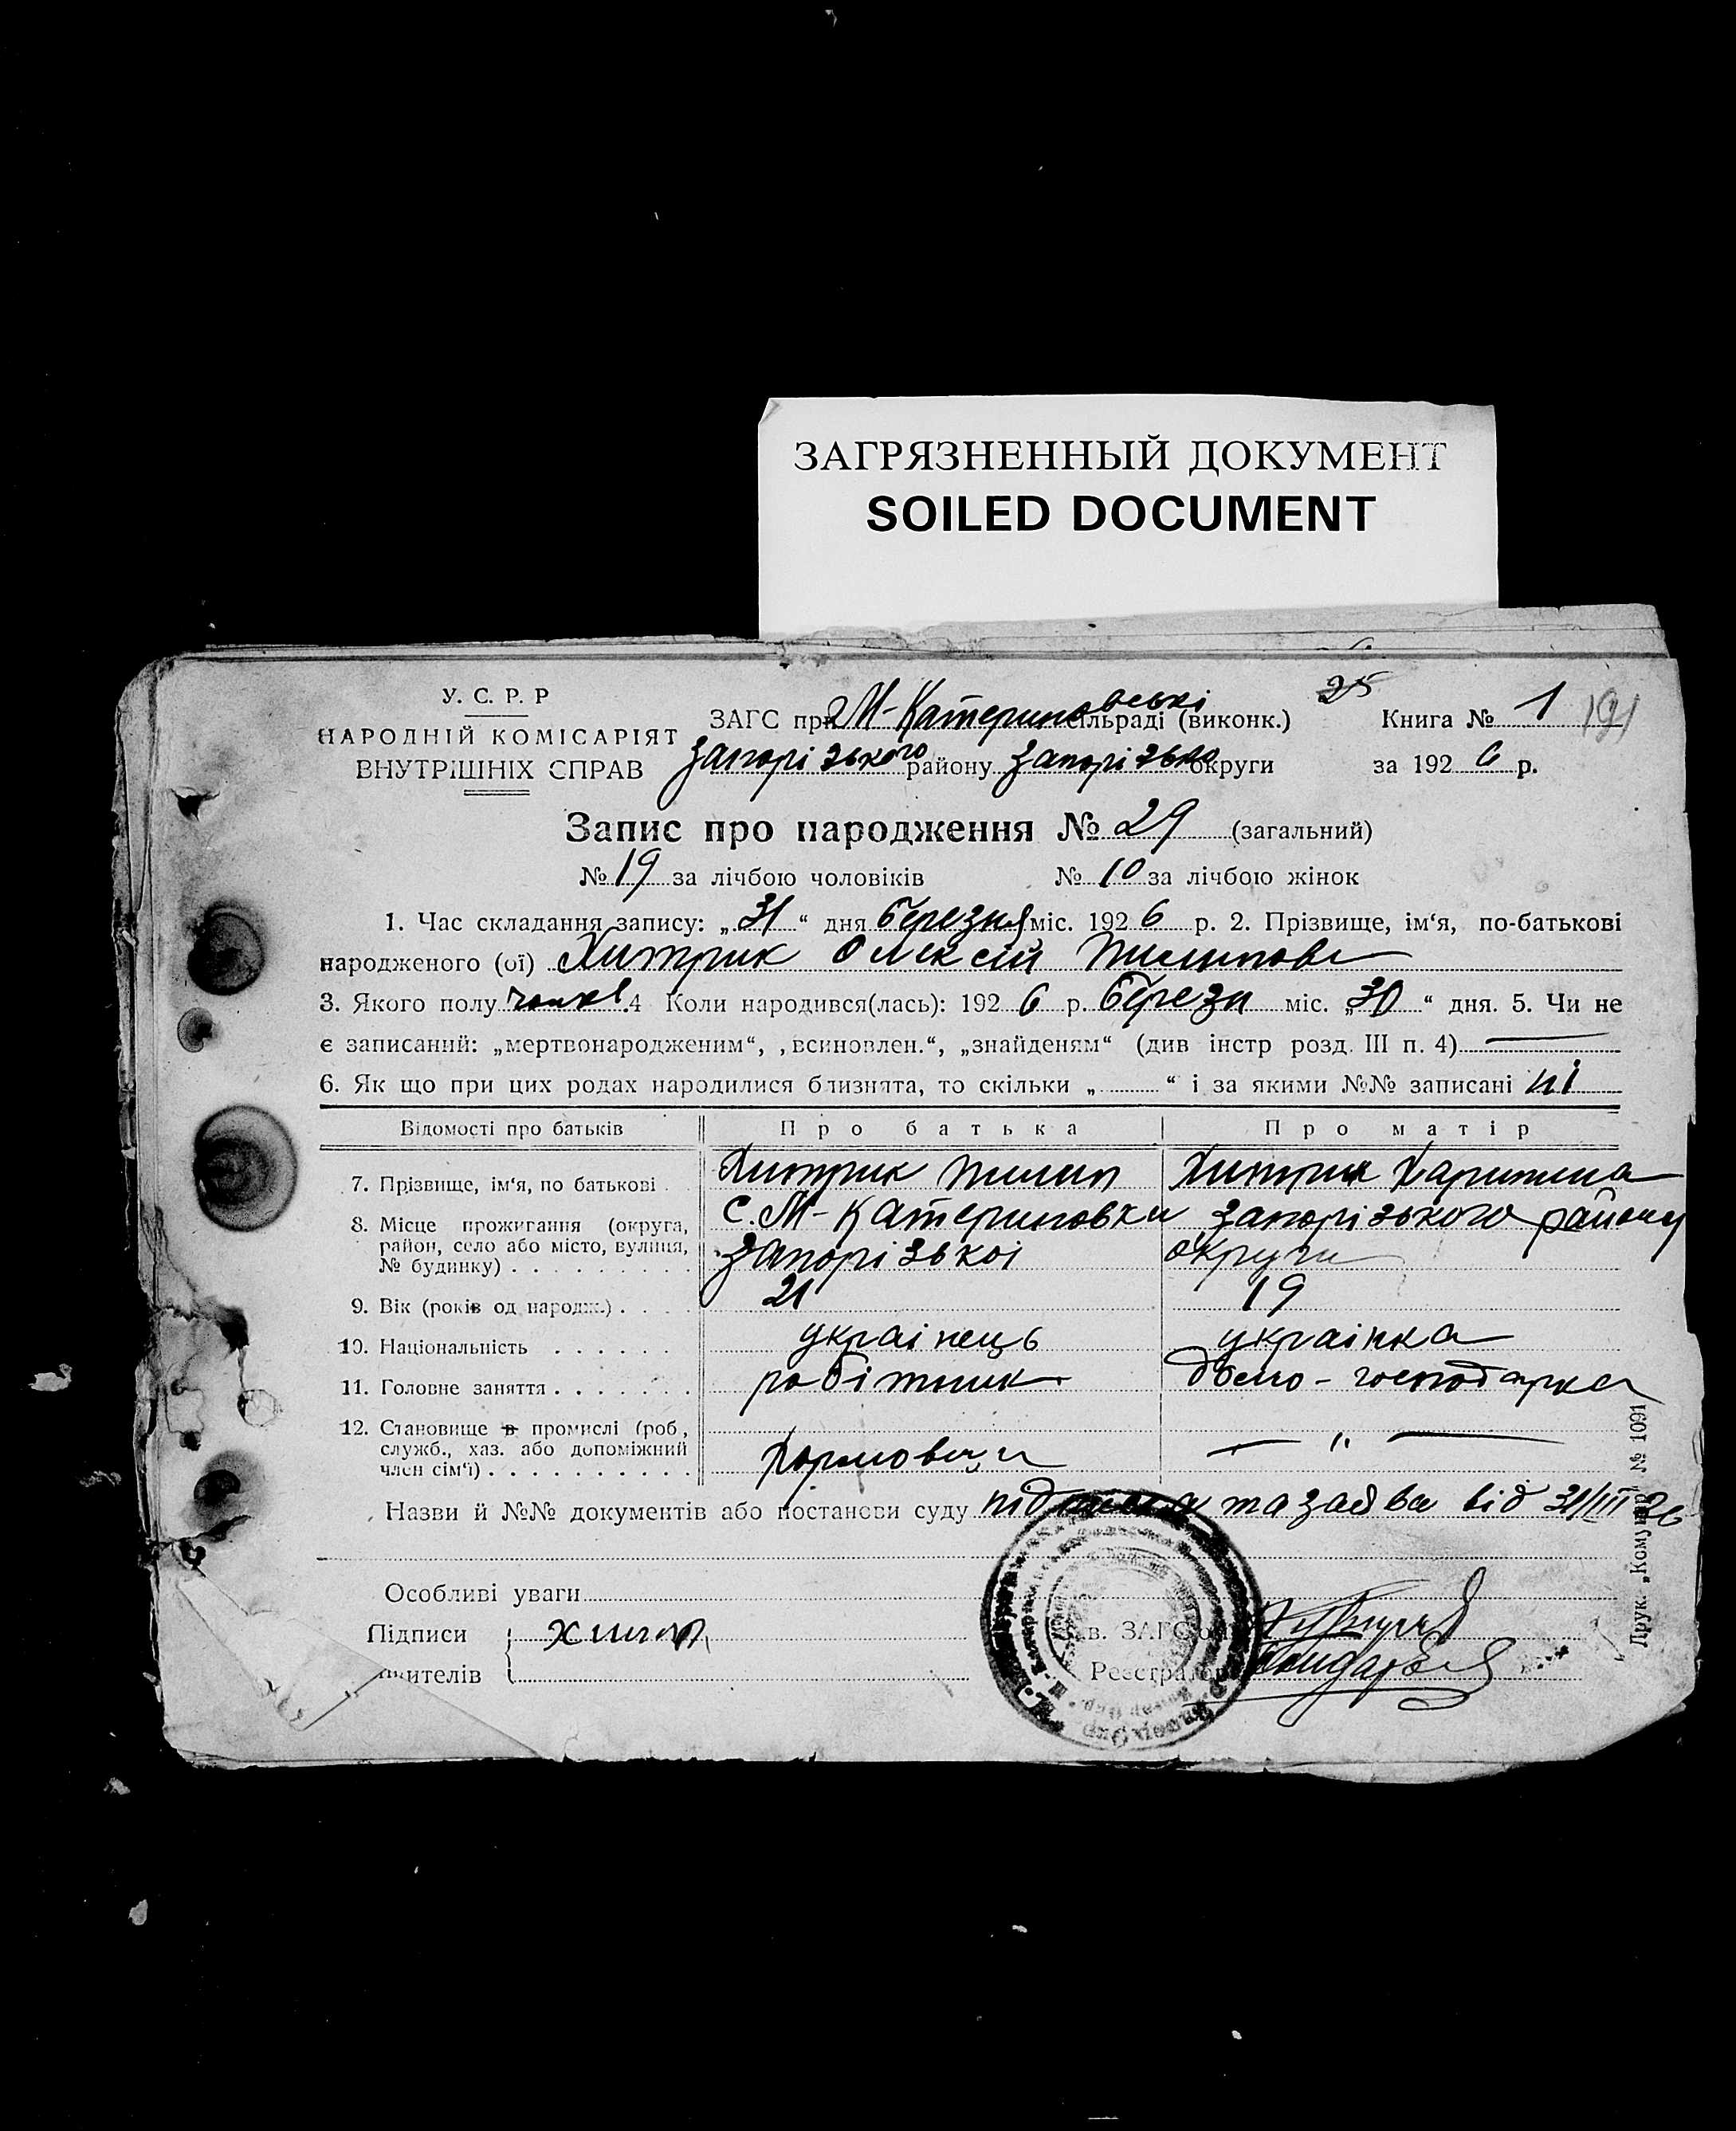 ЗАГРЯЗНЕННЫЙ ДОКУМЕНТ
SOILED DOCUMENT
У. С. Р. Р
НАРОДНІЙ КОМІСАРІЯТ
ВНУТРІШНІХ СПРАВ
25
ЗАГС при М-Катериновські сільраді (виконк.) Книга № 1 191
Запорізького району Запорізько округи за 192 6 р.
Запис про народження № 29 (загальний)
№ 19 за лічбою чоловіків № 10 за лічбою жінок
1. Час складання запису: „ 31 “ дня березня міс. 192 6 р. 2. Прізвище, ім‘я, по-батькові
народженого (ої) Хитрик Олексій Пилипове
3. Якого полу чолов 4 Коли народився(лась): 192 6 р. березн міс. „ 30 “ дня. 5. Чи не
є записаний: „мертвонародженим“, „всиновлен.“, „знайденям“ (див інстр розд. III п. 4)
6. Як що при цих родах народилися близнята, то скільки „ “ і за якими №№ записані ні
Відомості про батьків Про батька Про матір
7. Прізвище, ім‘я, по батькові Хитрик Пилип Хитрик Харитина
8. Місце прожигання (округа, район, село або місто, вулиця, № будинку) с. М-Катериновки Запорізького району
Запорізькоі округи
9. Вік (років од народж.) 21 19
10. Національність украінець украінка
11. Головне заняття робітник домо-господарка
12. Становище в промислі (роб, служб., хаз. або допоміжний член сім‘ї) Формовщи — „ —
Назви й №№ документів або постанови суду підписка та заява від 31/III 26
Особливі уваги
Підписи
Зав. ЗАГС‘ом
явителів
Реєстратор
Друк. „Комунар“ № 1091